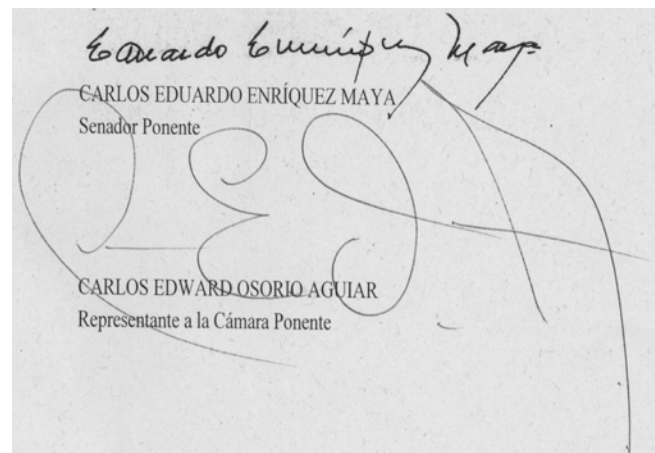 Eduardo Enríquez Maya
CARLOS EDUARDO ENRÍQUEZ MAYA
Senador Ponente
CARLOS EDWARD OSORIO AGUIAR
Representante a la Cámara Ponente